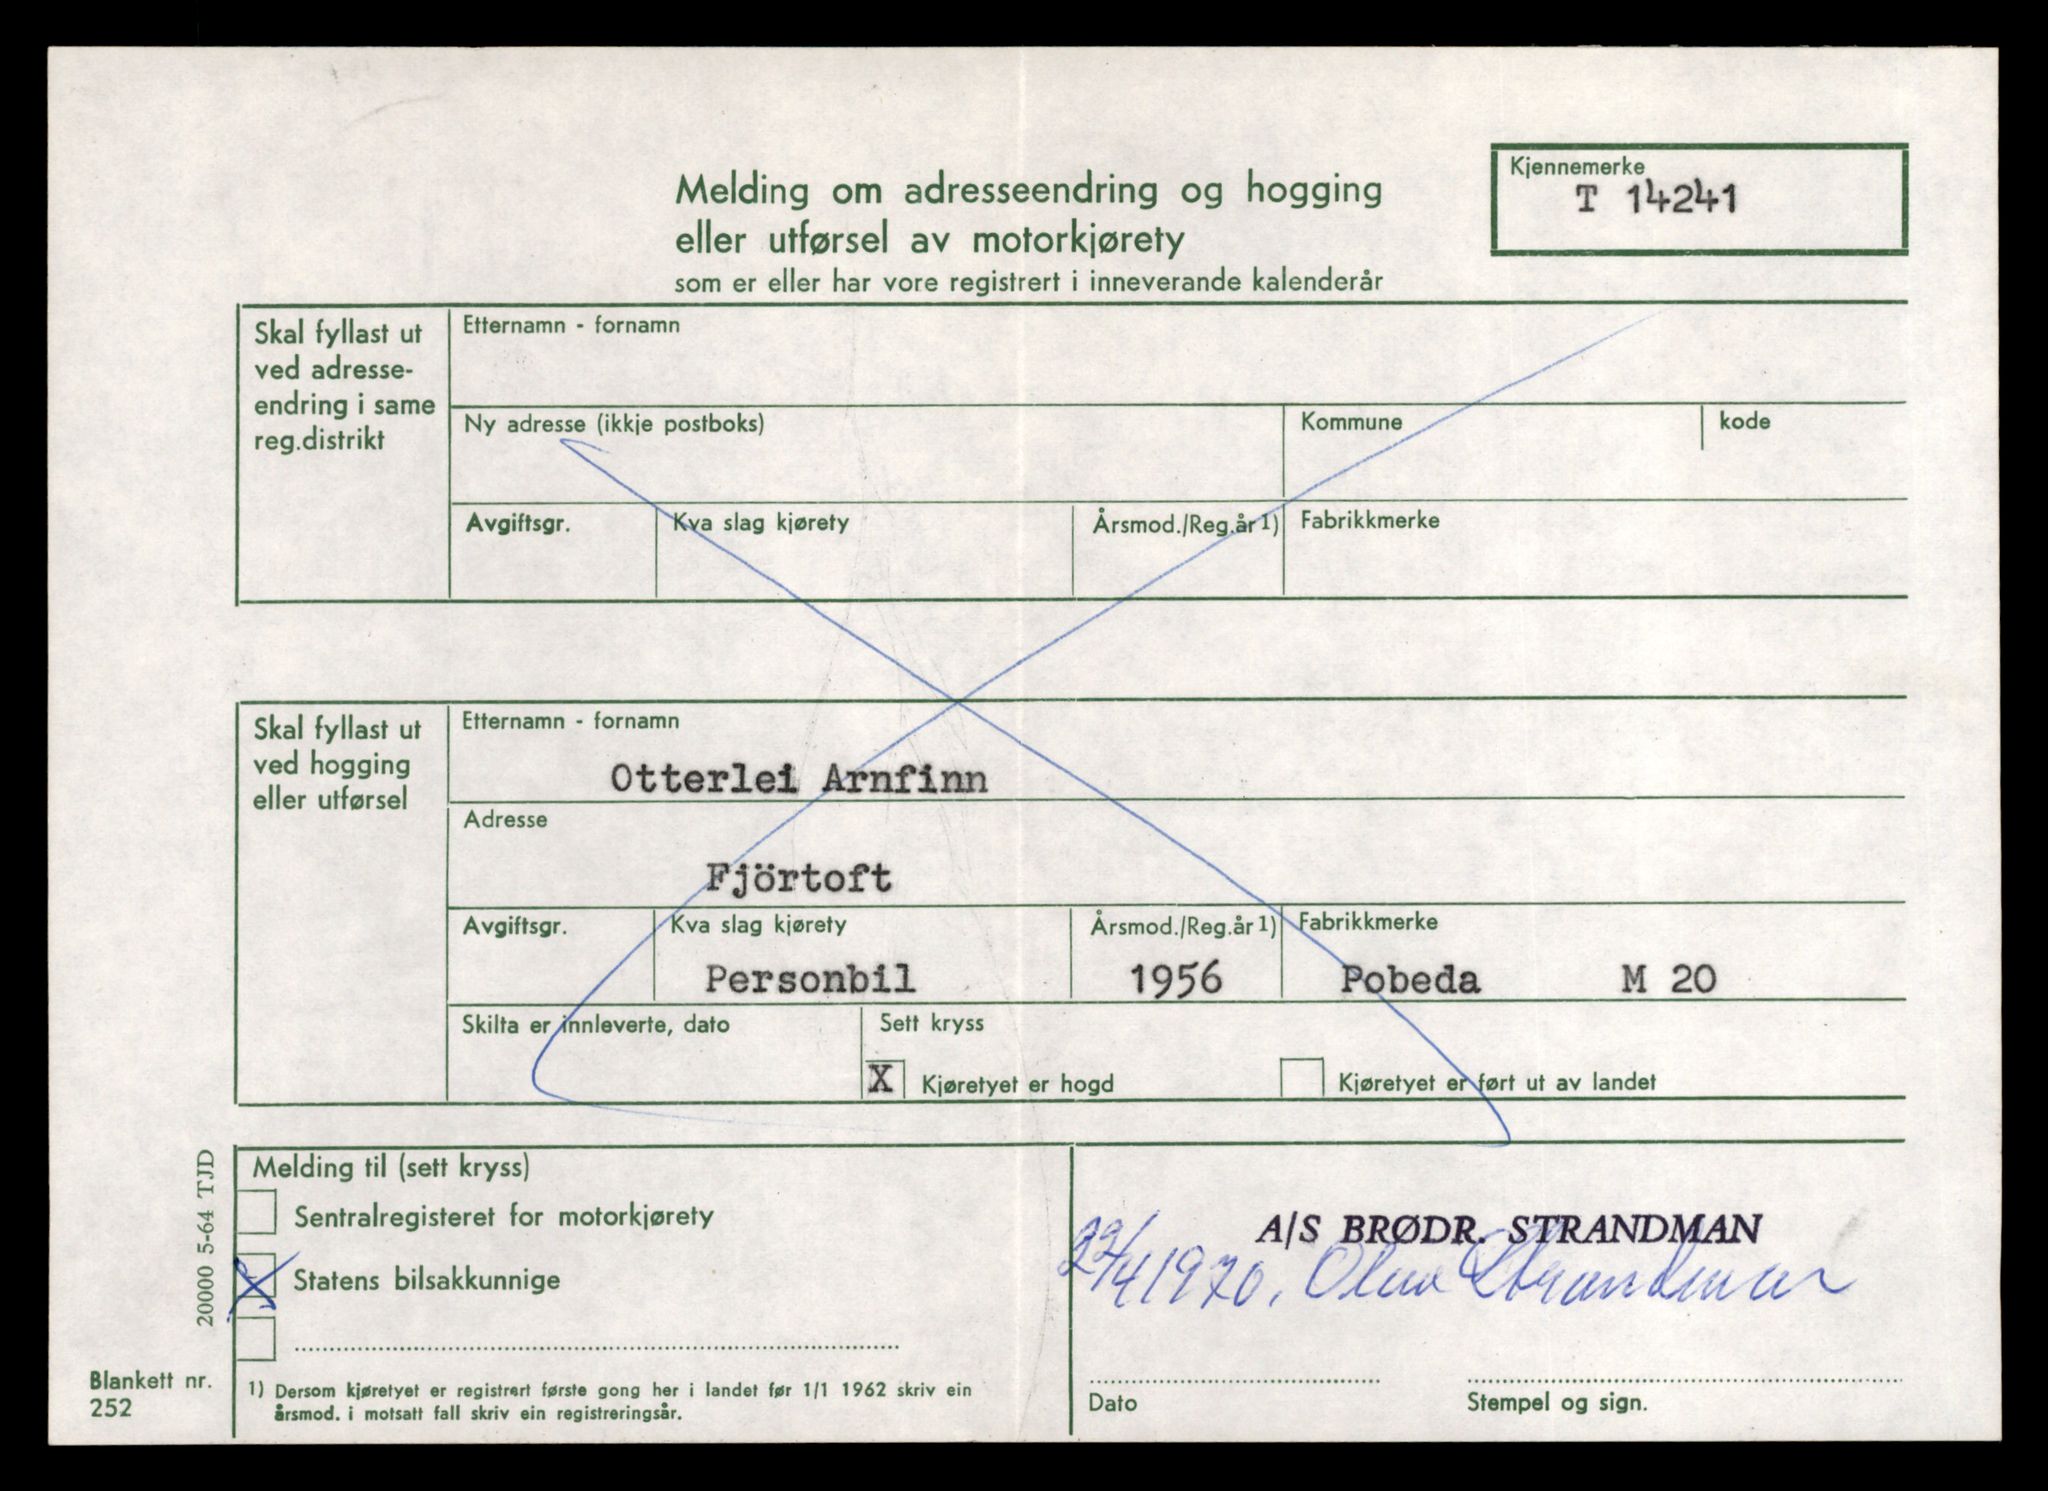 Kjennemerke
T 14241
Melding om adresseendring og hogging
eller utførsel av motorkjørety
som er eller har vore registrert i inneverande kalenderår
Skal fyllast ut
ved adresse-
endring i same
reg.distrikt
Etternamn - fornamn
Ny adresse (ikkje postboks)
Kommune
kode
Avgiftsgr.
Kva slag kjørety
Årsmod./Reg.år 1)
Fabrikkmerke
Skal fyllast ut
ved hogging
eller utførsel
Etternamn - fornamn
Otterlei Arnfinn
Adresse
Fjörtoft
Avgiftsgr.
Kva slag kjørety
Årsmod./Reg.år 1)
Fabrikkmerke
Personbil
1956
Pobeda M 20
Skilta er innleverte, dato
Sett kryss
X Kjøretyet er hogd
Kjøretyet er ført ut av landet
Melding til (sett kryss)
Sentralregisteret for motorkjørety
X Statens bilsakkunnige
A/S BRØDR. STRANDMAN
22/4 1970. Strandman
Dato
Stempel og sign.
1) Dersom kjøretyet er registrert første gong her i landet før 1/1 1962 skriv ein
årsmod. i motsatt fall skriv ein registreringsår.
20000 5-64 TJD
Blankett nr.
252